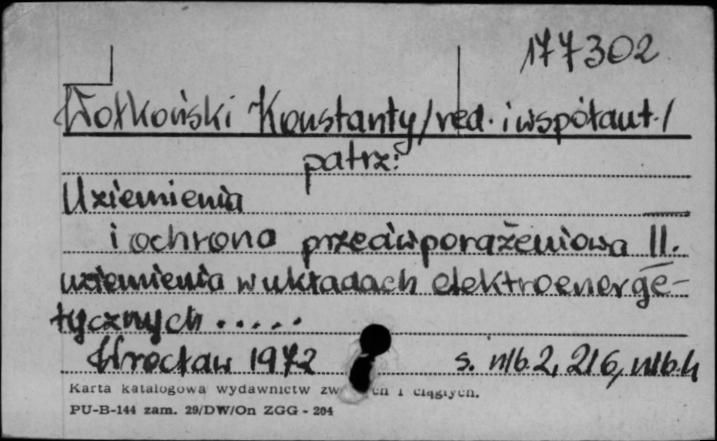 177302
Wołkoński Konstanty/red. i współaut./
patrz:
Uziemienia
i ochrona przeciwporażeniowa II.
uziemienia w układach elektroenerge-
tycznych .....
Wrocław 1972 s. nlb. 2, 216, nlb. 4
Karta katalogowa wydawnictw zw ch i ciągłych.
PU-B-144 zam. 29/DW/On ZGG - 204